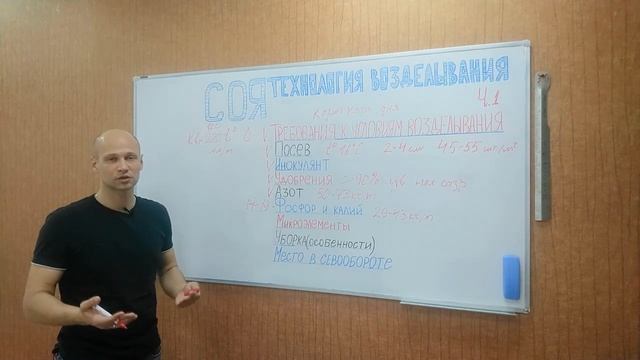 СОЯ ТЕХНОЛОГИЯ ВОЗДЕЛЫВАНИЯ
Ч.1
Короткого дня
ТРЕБОВАНИЯ К УСЛОВИЯМ ВОЗДЕЛЫВАНИЯ
V ПОСЕВ 2-4 см 45-55 шт/м²
V ИНОКУЛЯНТ
V УДОБРЕНИЯ
V АЗОТ
ФОСФОР И КАЛИЙ
МИКРОЭЛЕМЕНТЫ
УБОРКА (ОСОБЕННОСТИ)
МЕСТО В СЕВООБОРОТЕ